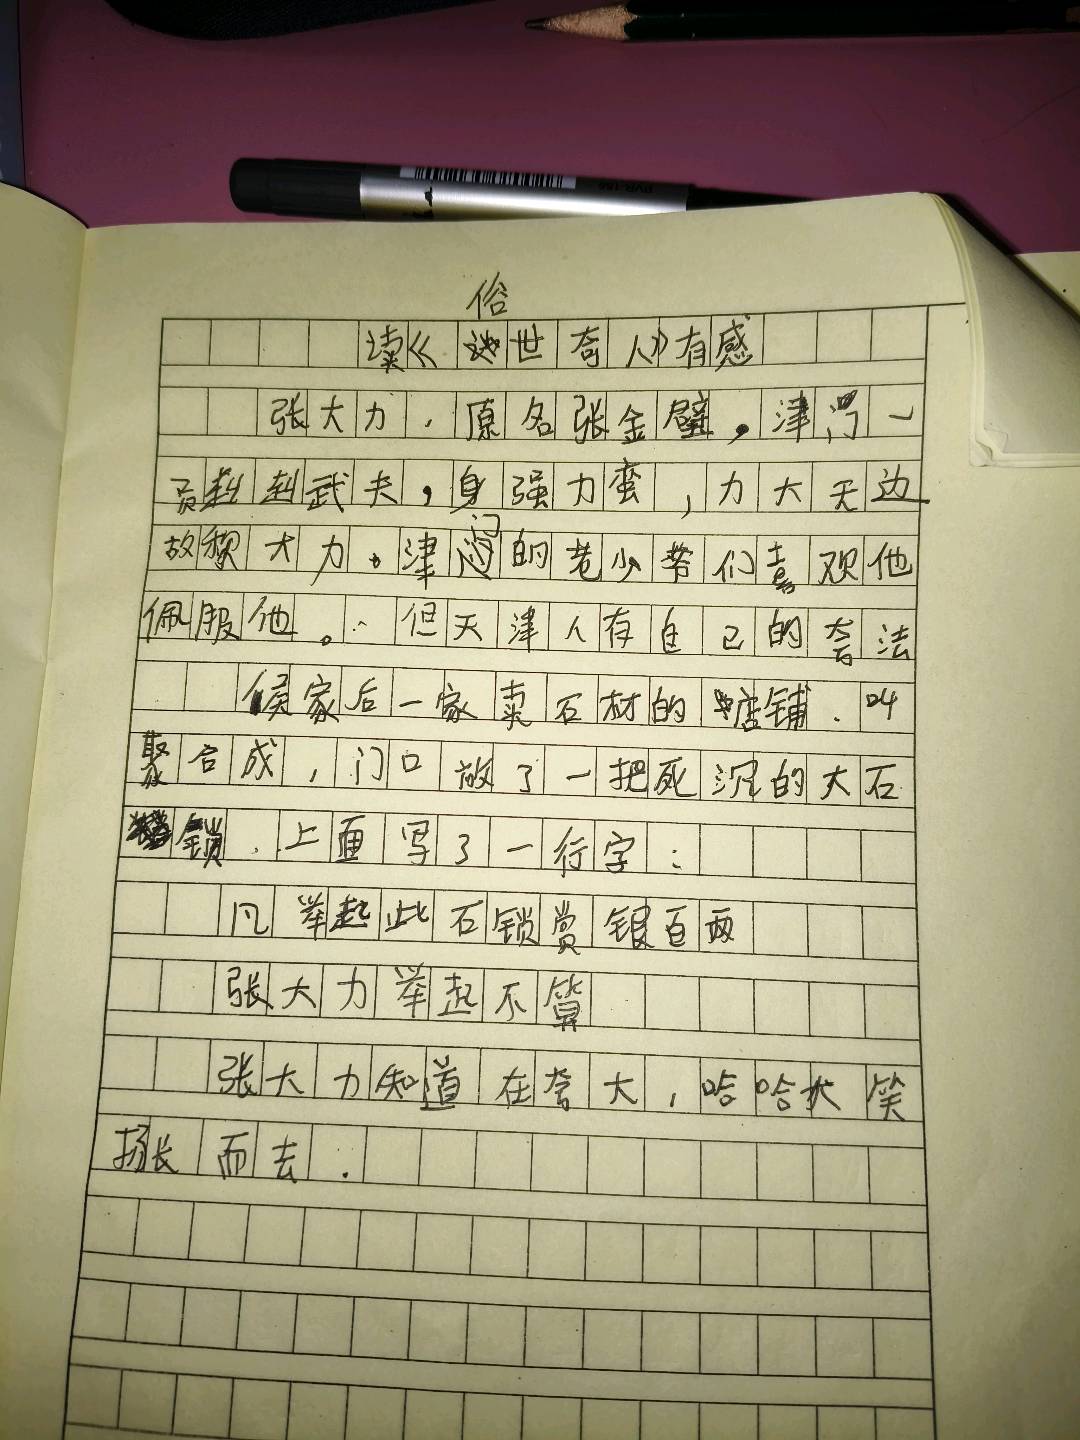 PVR-155
俗
读《世奇人》有感
张大力，原名张金璧，津门一
员赳赳武夫，身强力蛮，力大无边
故称大力。津门的老少爷们喜欢他
佩服他。但天津人有自己的夸法
侯家后一家卖石材的店铺，叫
聚合成，门口放了一把死沉的大石
锁，上面写了一行字：
凡举起此石锁赏银百两
张大力举起不算
张大力知道在夸大，哈哈大笑
扬长而去.